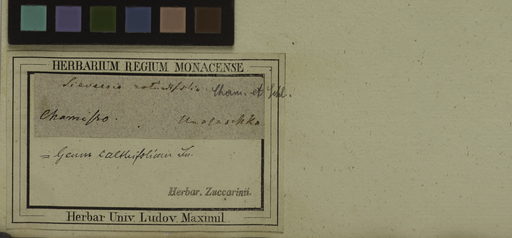 HERBARIUM REGIUM MONACENSE
Sieversia rotundifolia Cham. et Schl.
Chamisso. Unalaschka
= Geum calthifolium Sm.
Herbar. Zuccarinii.
Herbar Univ. Ludov. Maximil.